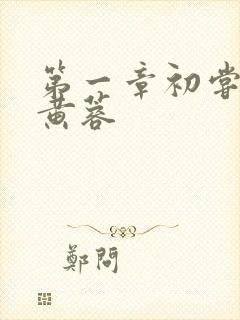 第一章初尝
黄蓉
鄭問